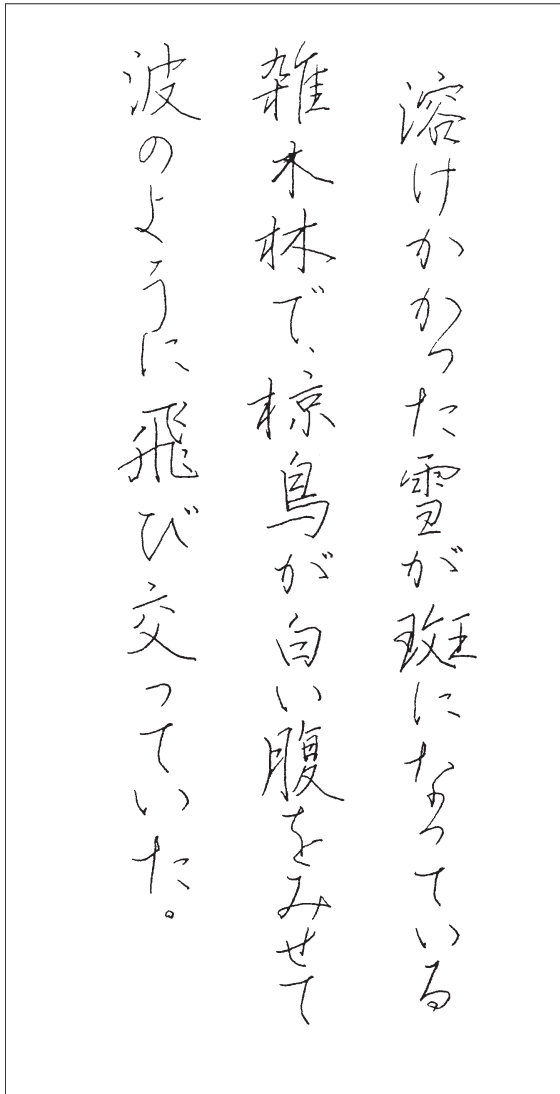 溶けかかった雪が斑になっている
雑木林で、椋鳥が白い腹をみせて
波のように飛び交っていた。